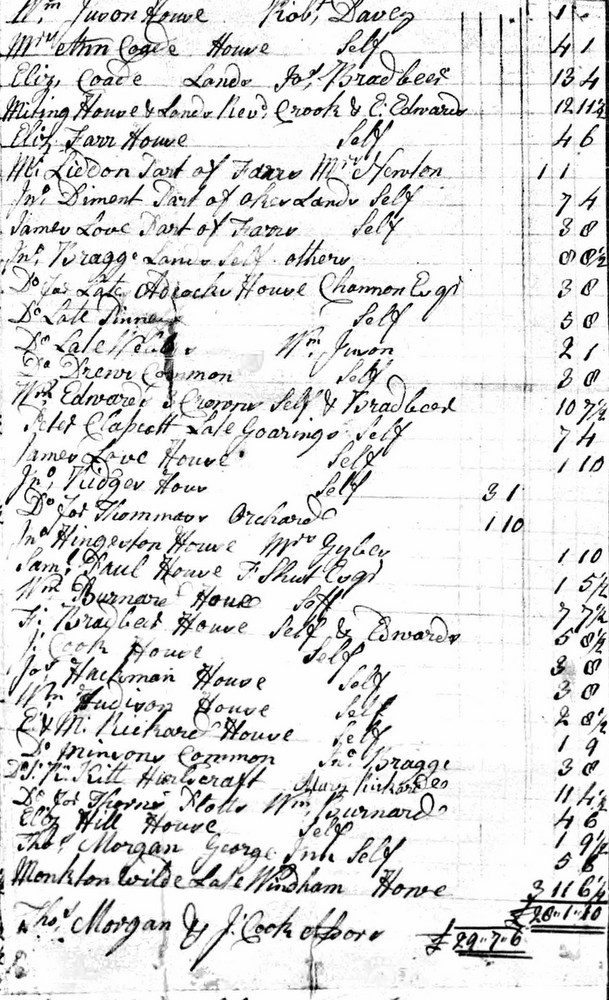 Wm Juson House Robt Davey 1
Mrs Ann Coade House Self 4 1
Eliz Coade Lands Jos Bradbeer 13 4
Miting House & Lands Revd Crook & E. Edwards 12 11½
Eliz Farr House Self 4 6
Mr Liddon Part of Farrs Mrs Newton 1 1
Jno Diment Part of okes Lands Self 7 4
James Love Part of Farrs Self 3 8
Jno Bragge Lands Self others 8 8½
Do for Late Adcocks House Channon Esqr 3 8
Do Late Pinneys Self 5 8
Do Late Wm Juson 2 1
Do Drews Common Self 3 8
Wm Edwards 3 Crowns Self & Bradbeer 10 7½
Peter Clapcott Late Goarings Self 7 4
James Love House Self 1 10
Jno Pidger Hous Self 3 1
Do for Thommass Orchard 1 10
Jno Hingeston House Mrs Gyles 1 10
Saml Paul House F Shut Esqr 1 5½
Wm Burnard House Self 7 7½
F: Bradbeer House Self & Edwards 5 8½
J: Cook House Self 3 8
Jos Hackman House Self 3 8
Wm Hudison House Self 2 8½
E & M: Rickard House Self 1 9
Do Minsons Common Jno Bragge 3 8
Hurlscraft 11 4½
Do for Thorns Plotts Wm Burnard 4 6
Eliz Hill House Self 1 9½
Thos Morgan George Inn Self 5 6
Monkton Wilde Late Windham Howe 3 11 6¼
£28"1"10
Thos Morgan & J: Cook £29"7"6